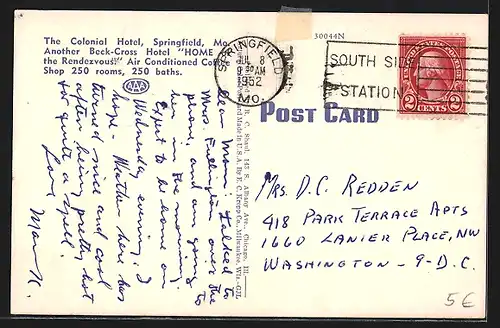 The Colonial Hotel, Springfield, Mo.
Another Beck-Cross Hotel "HOME
the Rendezvous" Air Conditioned Coffee
Shop 250 rooms, 250 baths.
AAA
30044N
SPRINGFIELD
JUL 8
9 AM
1952
MO.
SOUTH SIDE
STATION
2 CENTS 2
POST CARD
Dear Mrs: Talked to
Mrs. over the
phone, and am going to
her in the morning.
Expect to be home on
Wednesday evening, I
hope. Weather here has
turned nice and cool
after being pretty hot
for quite a spell.
Love
R. C. Shaul, 143 S. Albany Ave., Chicago, Ill.
Made in U.S.A. by E. C. Kropp Co., Milwaukee, Wis.
MRS. D.C. REDDEN
418 PARK TERRACE APTS
1660 LANIER PLACE, NW
WASHINGTON - 9 - D.C.
5€